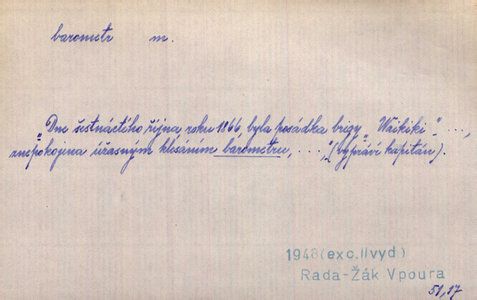 barometr m.
„Dne šestnáctého října roku 1866, byla posádka brigy „Waikiki“ ...,
znepokojena úžasným klesáním barometru, ....,“ (vypráví kapitán).
1948 (exc. II vyd)
Rada-Žák Vpoura
51,17